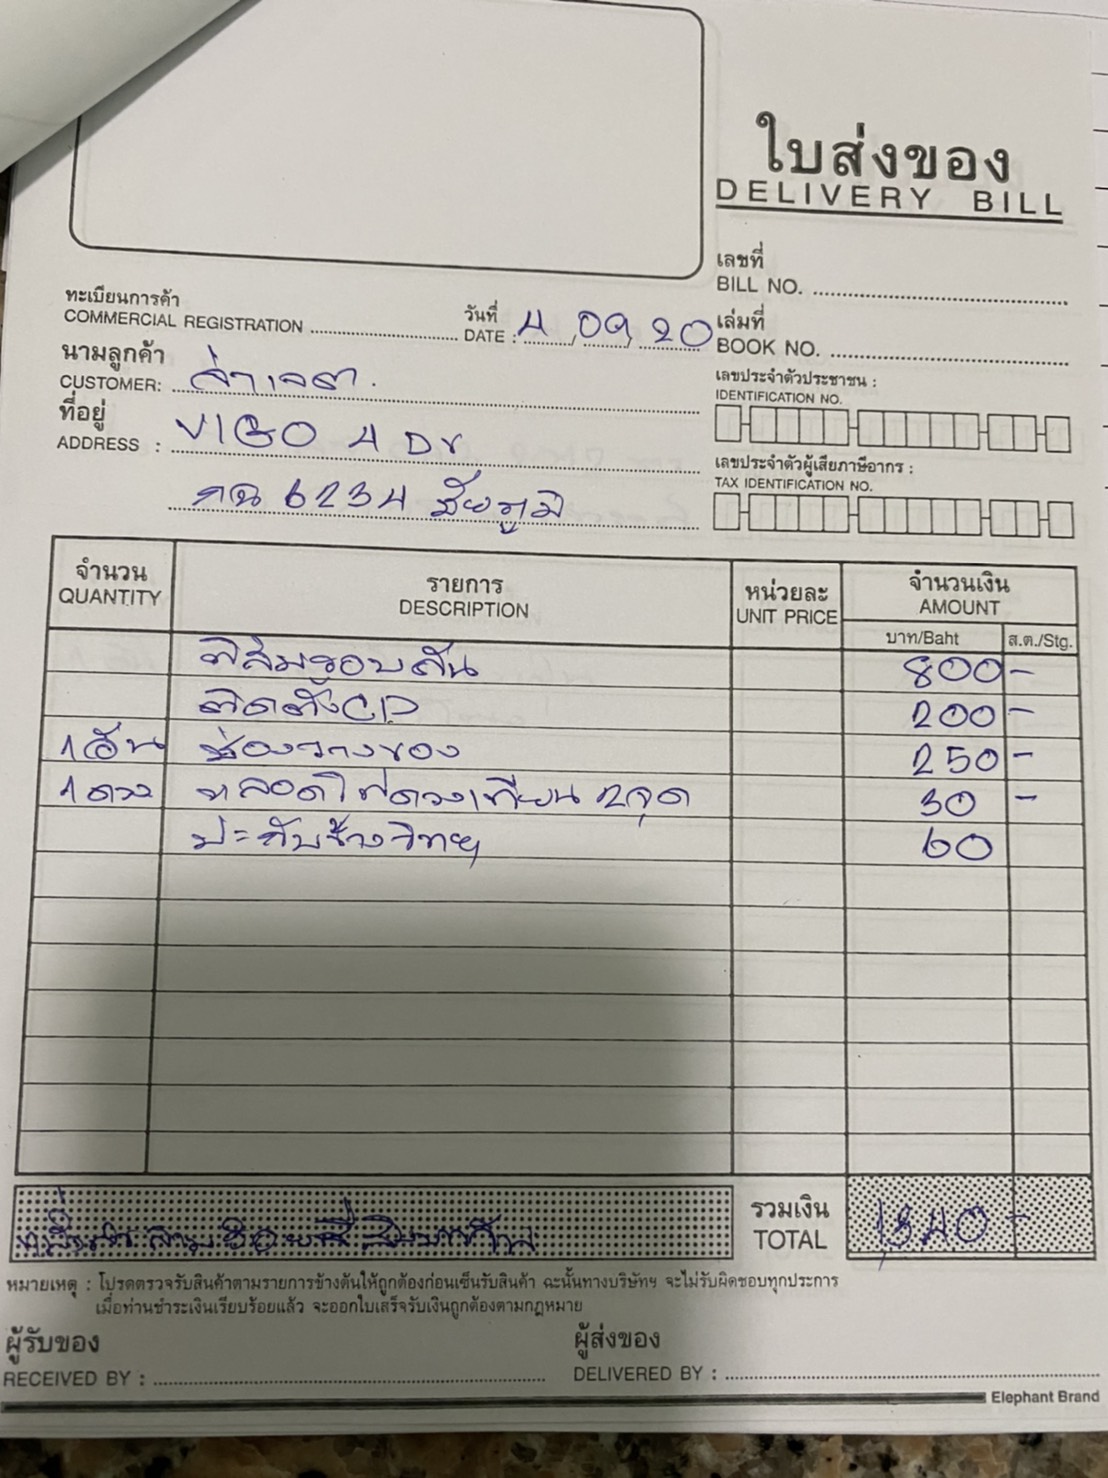 ใบส่งของ
DELIVERY BILL
เลขที่
BILL NO.
ทะเบียนการค้า
COMMERCIAL REGISTRATION
วันที่
DATE : 4 / 09 / 20
เล่มที่
BOOK NO.
นามลูกค้า
CUSTOMER:
เลขประจำตัวประชาชน :
IDENTIFICATION NO.
ที่อยู่
ADDRESS : VIGO 4 Dr
6234 ชัยภูมิ
เลขประจำตัวผู้เสียภาษีอากร :
TAX IDENTIFICATION NO.
จำนวน รายการ หน่วยละ จำนวนเงิน
QUANTITY DESCRIPTION UNIT PRICE AMOUNT
บาท/Baht ส.ต./Stg.
ฟิล์มรอบคัน 800 -
ติดตั้ง CD 200 -
1 อัน ช่องวางของ 250 -
1 ดวง หลอดไฟดวงเทียน 2 จุด 30 -
ปะกับข้างวิทยุ 60
หนึ่งพันสามร้อยสี่สิบบาทถ้วน
รวมเงิน
TOTAL 1,340 -
หมายเหตุ : โปรดตรวจรับสินค้าตามรายการข้างต้นให้ถูกต้องก่อนเซ็นรับสินค้า ฉะนั้นทางบริษัทฯ จะไม่รับผิดชอบทุกประการ
เมื่อท่านชำระเงินเรียบร้อยแล้ว จะออกใบเสร็จรับเงินถูกต้องตามกฎหมาย
ผู้รับของ
RECEIVED BY :
ผู้ส่งของ
DELIVERED BY :
Elephant Brand